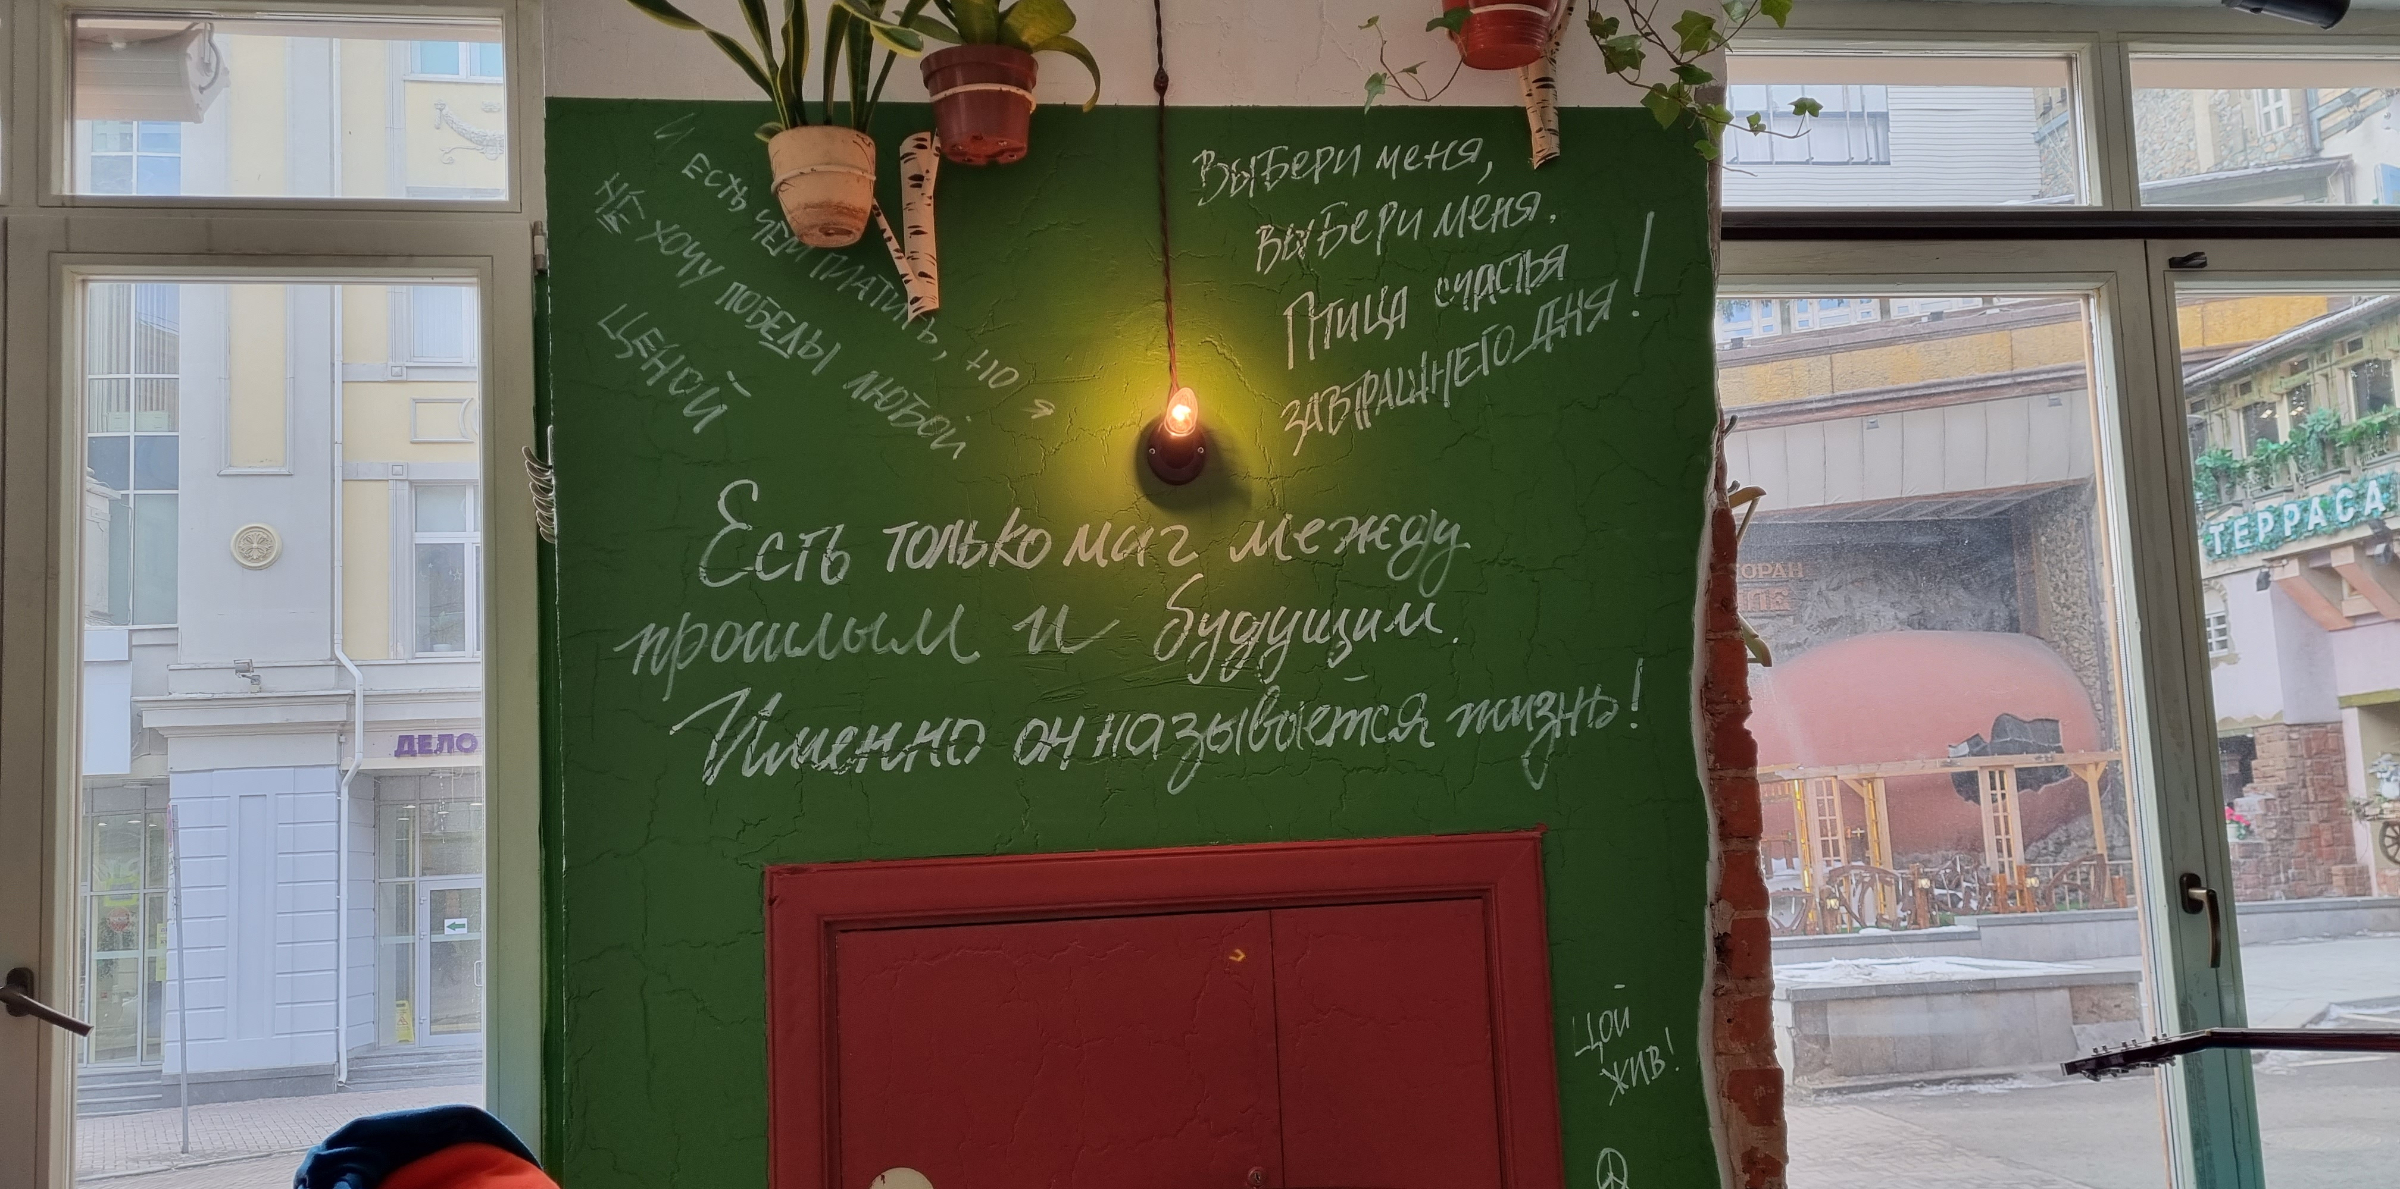 И есть чем платить, но я
не хочу победы любой
ценой
Выбери меня,
выбери меня.
Птица счастья
завтрашнего дня!
Есть только миг между
прошлым и будущим.
Именно он называется жизнь!
Цой
жив!
ДЕЛО
ТЕРРАСА